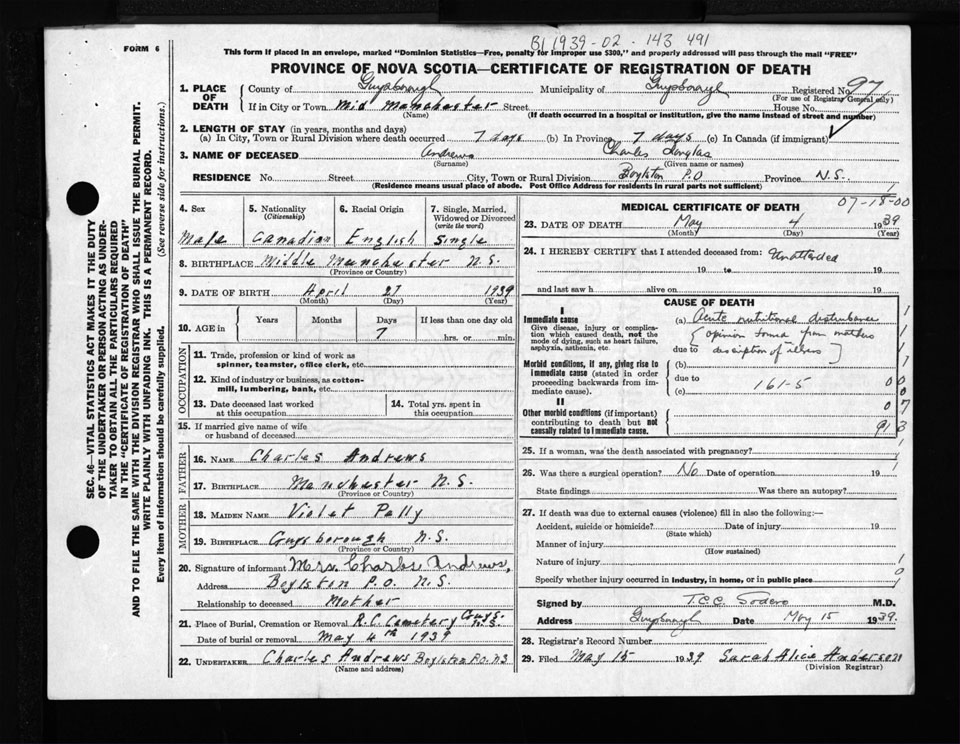 FORM 6
B1 1939-02-143 491
This form if placed in an envelope, marked "Dominion Statistics—Free, penalty for improper use $300," and properly addressed will pass through the mail "FREE"
PROVINCE OF NOVA SCOTIA—CERTIFICATE OF REGISTRATION OF DEATH
1. PLACE OF DEATH County of Guysborough Municipality of Guysborough Registered No. 97
(For use of Registrar General only)
If in City or Town Mid Manchester Street House No.
(Name) (If death occurred in a hospital or institution, give the name instead of street and number)
2. LENGTH OF STAY (in years, months and days)
(a) In City, Town or Rural Division where death occurred 7 days (b) In Province 7 days (c) In Canada (if immigrant)
3. NAME OF DECEASED Andrews Charles Douglas
(Surname) (Given name or names)
RESIDENCE No. Street City, Town or Rural Division Boylston P.O Province N.S. 1
(Residence means usual place of abode. Post Office Address for residents in rural parts not sufficient)
4. Sex 5. Nationality (Citizenship) 6. Racial Origin 7. Single, Married, Widowed or Divorced (write the word)
Male Canadian English Single
8. BIRTHPLACE Middle Manchester N.S.
(Province or Country)
9. DATE OF BIRTH April 27 1939
(Month) (Day) (Year)
10. AGE in Years Months Days If less than one day old
7 hrs. or min.
OCCUPATION
11. Trade, profession or kind of work as spinner, teamster, office clerk, etc.
12. Kind of industry or business, as cotton-mill, lumbering, bank, etc.
13. Date deceased last worked at this occupation 14. Total yrs. spent in this occupation
15. If married give name of wife or husband of deceased
FATHER
16. NAME Charles Andrews
17. BIRTHPLACE Manchester N.S.
(Province or Country)
MOTHER
18. MAIDEN NAME Violet Pally
19. BIRTHPLACE Guysborough N.S.
(Province or Country)
20. Signature of informant Mrs. Charles Andrews,
Address Boylston P.O. N.S.
Relationship to deceased Mother
21. Place of Burial, Cremation or Removal R.C. Cemetery Guys. N.S.
Date of burial or removal May 4th 1939
22. UNDERTAKER Charles Andrews Boylston P.O. N.S
(Name and address)
07-18-00
MEDICAL CERTIFICATE OF DEATH
23. DATE OF DEATH May 4 1939
(Month) (Day) (Year)
24. I HEREBY CERTIFY that I attended deceased from: Unattended
19 to 19
and last saw h alive on 19
CAUSE OF DEATH
I
Immediate cause
Give disease, injury or complication which caused death, not the mode of dying, such as heart failure, asphyxia, asthenia, etc.
(a) Acute nutritional disturbance
(opinion formed from mothers
due to description of illness)
Morbid conditions, if any, giving rise to immediate cause (stated in order proceeding backwards from immediate cause).
(b)
due to 161-5
(c)
II
Other morbid conditions (if important) contributing to death but not causally related to immediate cause.
1
1
1
1
0 0
0 7
9 1 3
25. If a woman, was the death associated with pregnancy?
26. Was there a surgical operation? No Date of operation 19
State findings Was there an autopsy?
27. If death was due to external causes (violence) fill in also the following:—
Accident, suicide or homicide? Date of injury 19
(State which)
Manner of injury
(How sustained)
Nature of injury
Specify whether injury occurred in industry, in home, or in public place
Signed by T.C.C. Sodero M.D.
Address Guysborough Date May 15 1939.
28. Registrar's Record Number
29. Filed May 15 1939 Sarah Alice Anderson
(Division Registrar)
SEC. 46—VITAL STATISTICS ACT MAKES IT THE DUTY
OF THE UNDERTAKER OR PERSON ACTING AS UNDER-
TAKER TO OBTAIN ALL THE PARTICULARS REQUIRED
IN THE "CERTIFICATE OF REGISTRATION OF DEATH"
AND TO FILE THE SAME WITH THE DIVISION REGISTRAR WHO SHALL ISSUE THE BURIAL PERMIT.
WRITE PLAINLY WITH UNFADING INK. THIS IS A PERMANENT RECORD.
Every item of information should be carefully supplied. (See reverse side for instructions.)